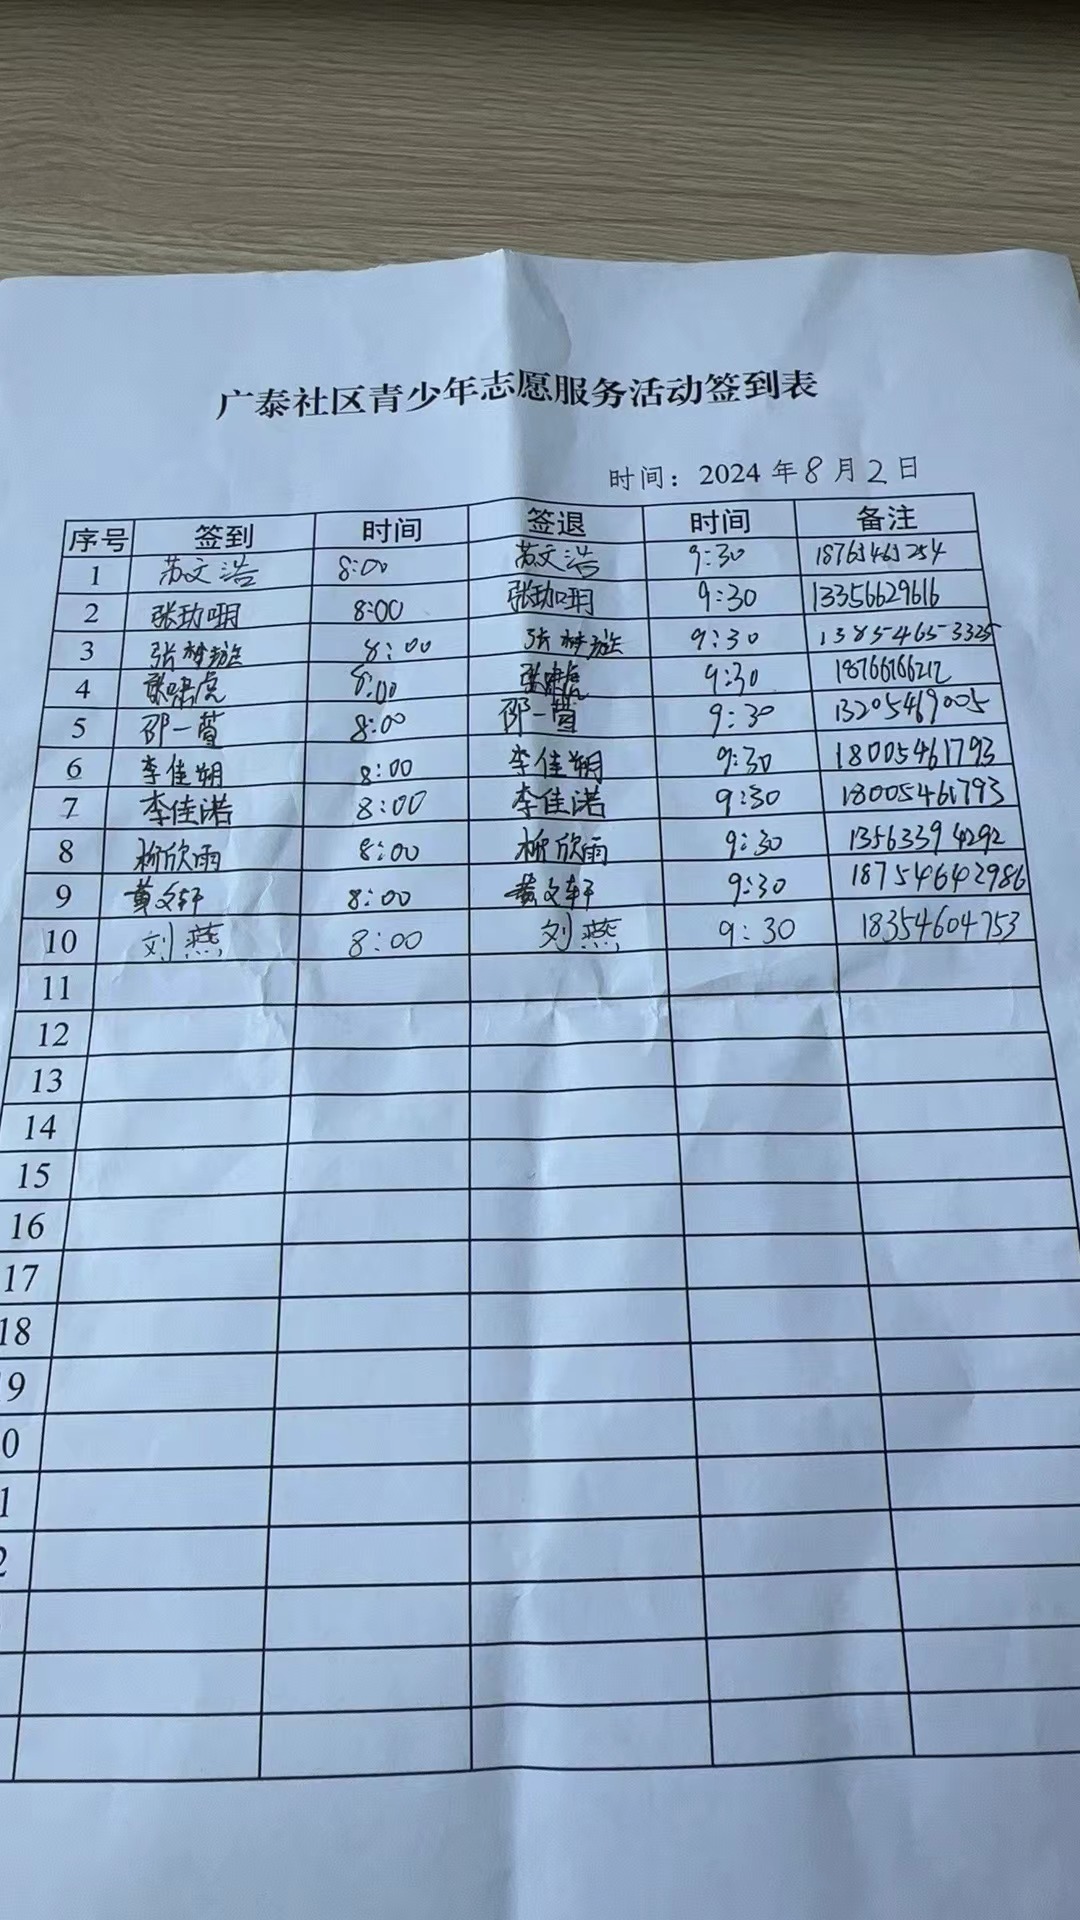 广泰社区青少年志愿服务活动签到表
时间：2024年8月2日
序号 签到 时间 签退 时间 备注
1 苏文浩 8:00 苏文浩 9:30 18765465254
2 张珈玥 8:00 张珈玥 9:30 13356629616
3 张梦璇 8:00 张梦璇 9:30 13854653325
4 张啸虎 8:00 张啸虎 9:30 18766166212
5 邵一萱 8:00 邵一萱 9:30 13205469005
6 李佳朔 8:00 李佳朔 9:30 18005461793
7 李佳诺 8:00 李佳诺 9:30 18005461793
8 柳欣雨 8:00 柳欣雨 9:30 13563394292
9 黄文轩 8:00 黄文轩 9:30 18754642986
10 刘燕 8:00 刘燕 9:30 18354604753
11
12
13
14
15
16
17
18
9
0
1
2